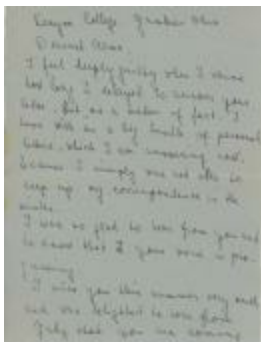 Kenyon College Gambier Ohio
Dearest
I feel deeply guilty when I
how long I delayed to answer your
letter. But as a matter of fact, I
have still a big bundle of personal
letters which I am answering now,
because I simply was not able to
keep up my correspondence in the
I was so glad to hear from you and
to know that your work is pro-
gressing.
I miss you this summer very much
and was delighted to hear from
that you are coming